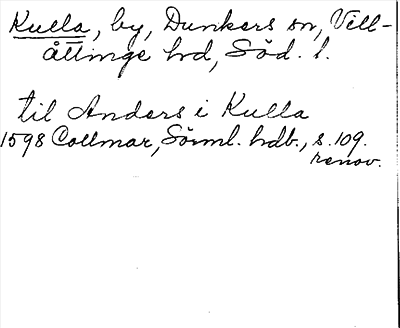 Kulla, by, Dunkers sn, Vill-
åttinge hd, Söd. l.
til Anders i Kulla
1598 Collmar, Sörml. hdb., s. 109.
renov.